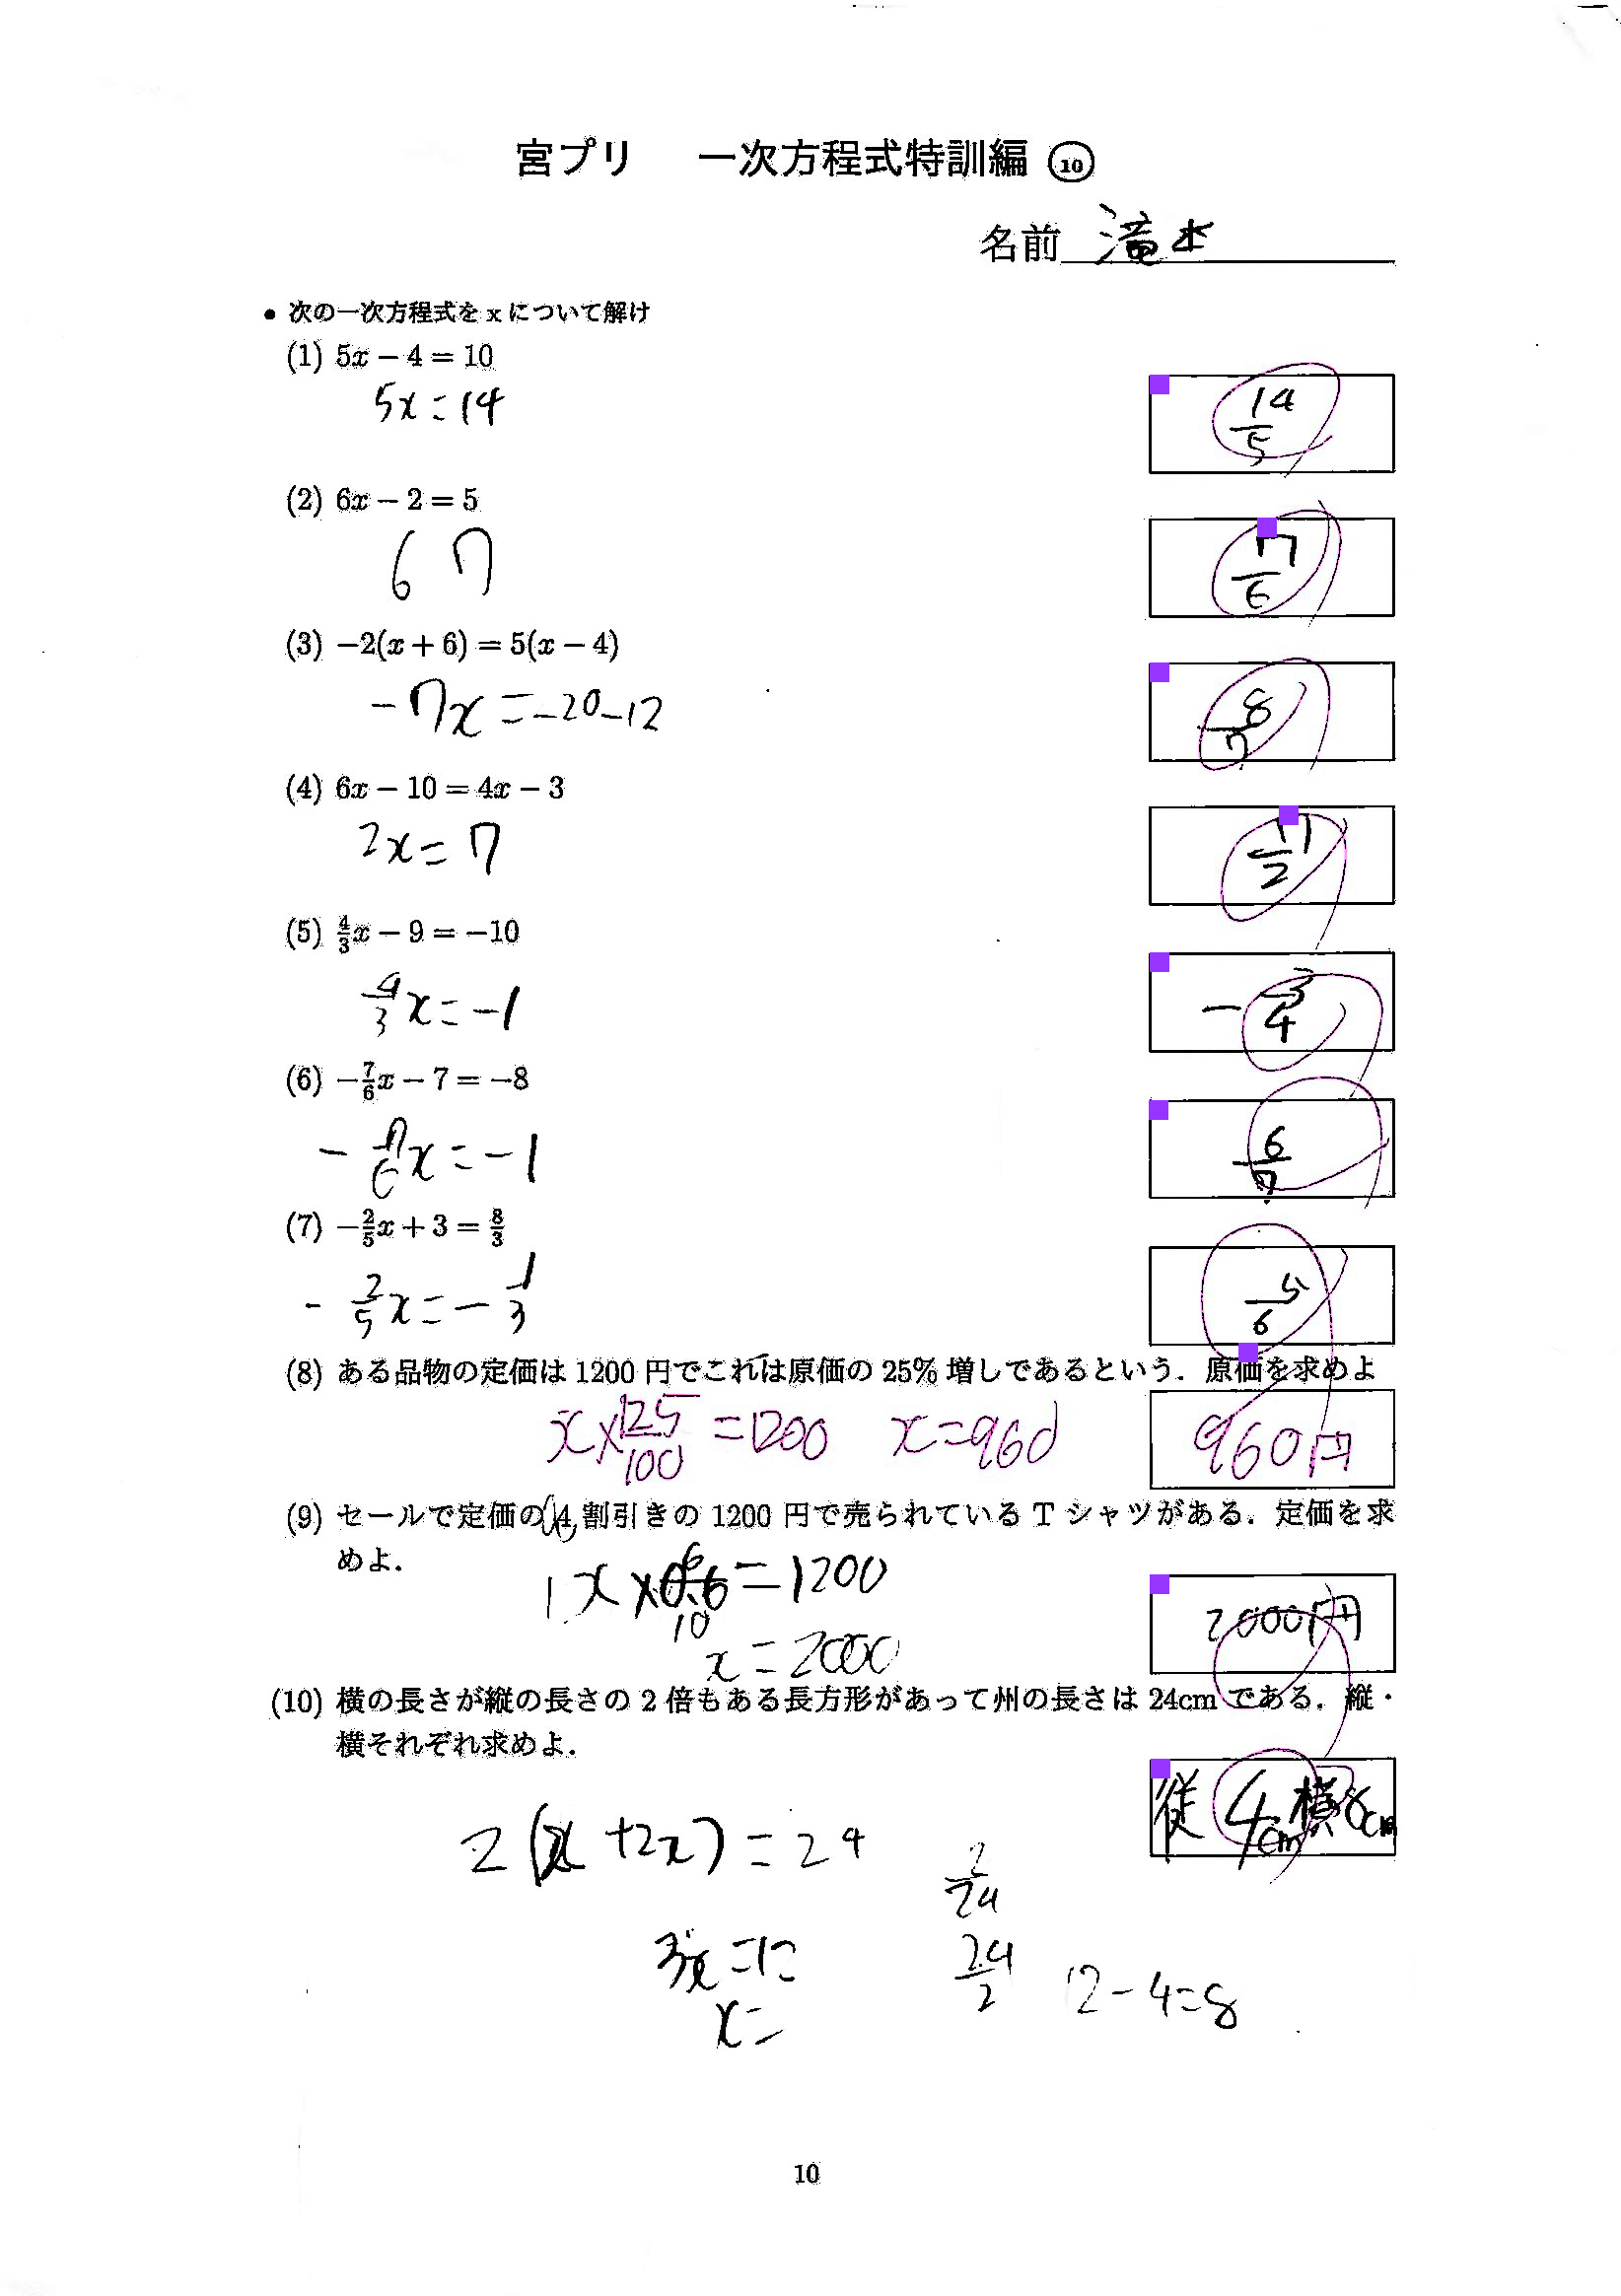 宮プリ 一次方程式特訓編 ⑩
名前 滝本
• 次の一次方程式を x について解け
(1) 5x − 4 = 10
5x = 14
14/5
(2) 6x − 2 = 5
6 7
7/6
(3) −2(x + 6) = 5(x − 4)
−7x = −20−12
8/7
(4) 6x − 10 = 4x − 3
2x = 7
7/2
(5) 4/3x − 9 = −10
4/3x = −1
−3/4
(6) −7/6x − 7 = −8
−7/6x = −1
6/7
(7) −2/5x + 3 = 8/3
−2/5x = −1/3
5/6
(8) ある品物の定価は 1200 円でこれは原価の 25% 増しであるという．原価を求めよ
x×125/100 = 1200 x=960
960円
(9) セールで定価の 4 割引きの 1200 円で売られている T シャツがある．定価を求
めよ．
x × 6/10 = 1200
x = 2000
2000円
(10) 横の長さが縦の長さの 2 倍もある長方形があって州の長さは 24cm である．縦・
横それぞれ求めよ．
従 4cm 横8cm
2(x+2x) = 24
2/24
3x = 12
24/2
12−4=8
x=
10